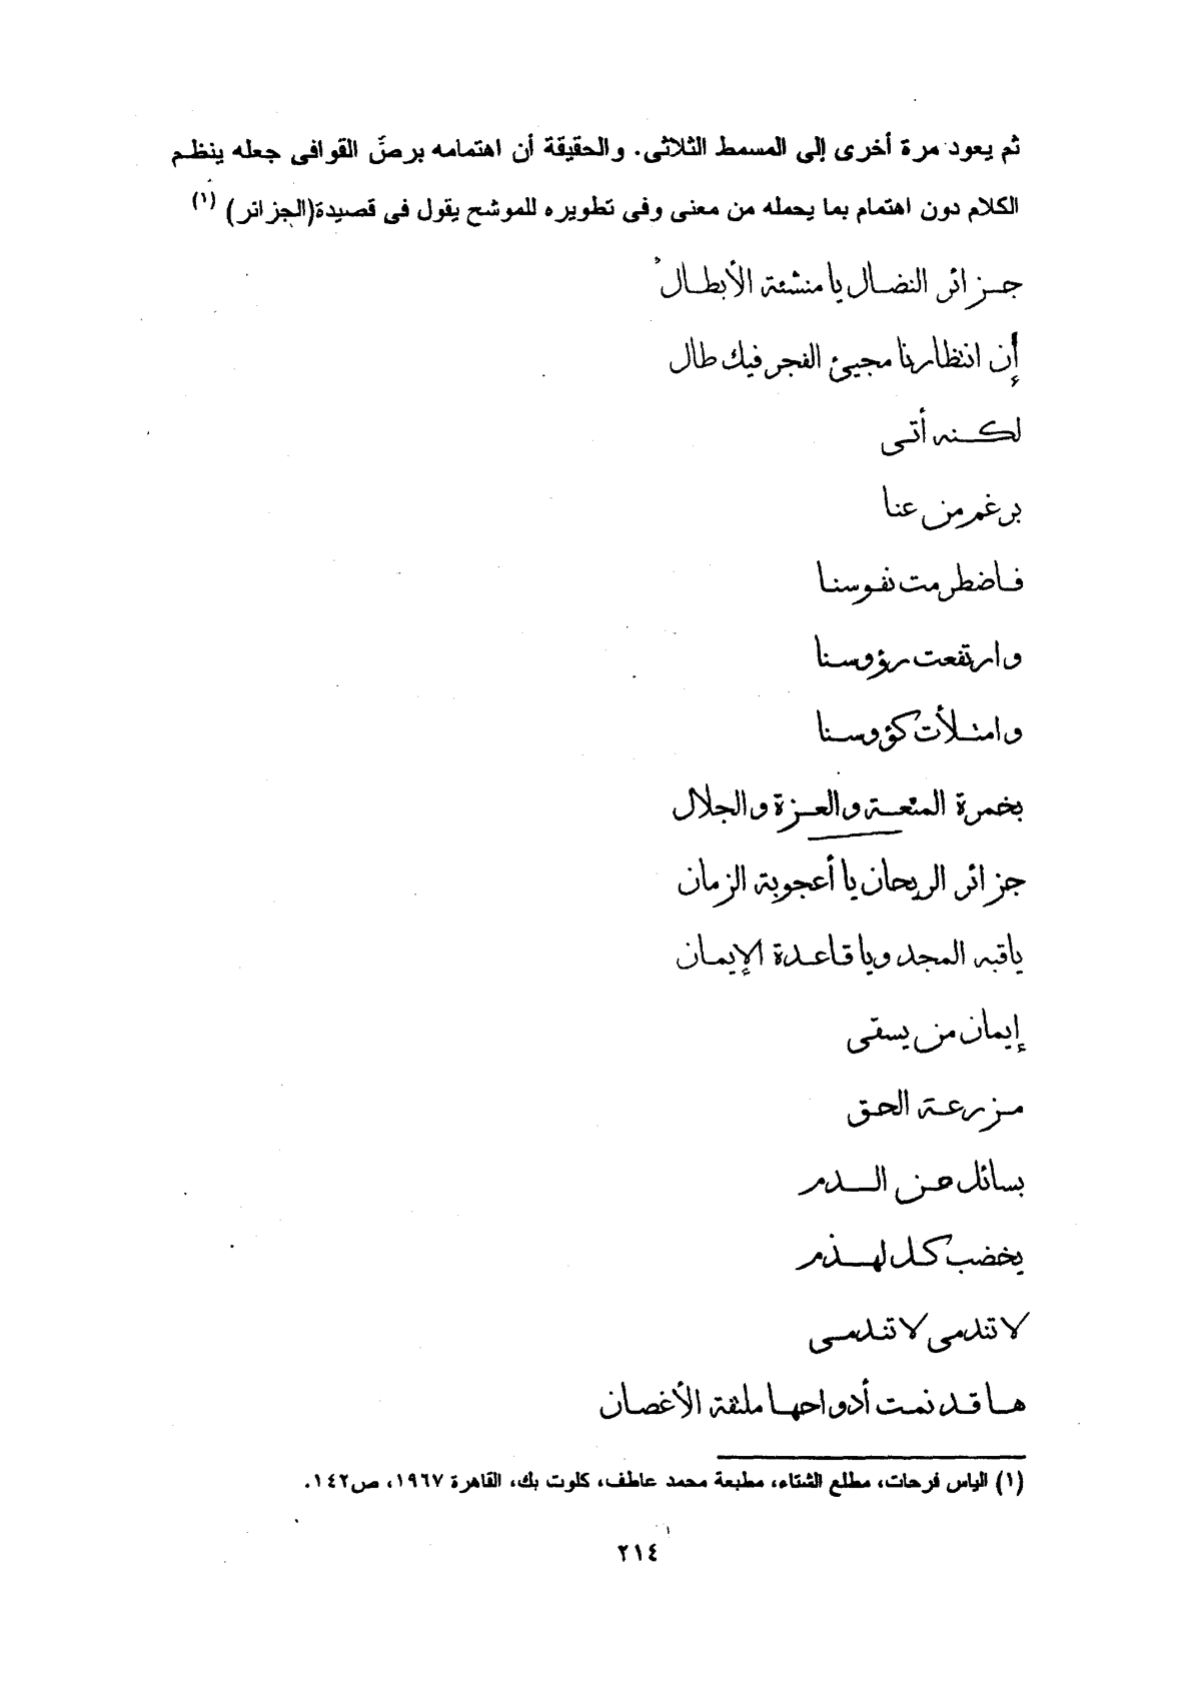 ثم يعود مرة أخرى إلى المسمط الثلاثى. والحقيقة أن اهتمامه برصِّ القوافى جعله ينظم
الكلام دون اهتمام بما يحمله من معنى وفى تطويره للموشح يقول فى قصيدة(الجزائر) (١)
جزائر النضال يا منشئة الأبطال
إن انتظارنا مجيئ الفجر فيك طال
لكنه أتى
برغم من عتا
فاضطرمت نفوسنا
وارتفعت رؤوسنا
وامتلأت كؤوسنا
بخمرة المنعة والعزة والجلال
جزائر الريحان يا أعجوبة الزمان
ياقبه المجد ويا قاعدة الإيمان
إيمان من يسقى
مزرعة الحق
بسائل من الدم
يخضب كل لهذم
لا تندمى لا تندمى
ها قد نمت أدواحها ملتفة الأغصان
(١) الياس فرحات، مطلع الشتاء، مطبعة محمد عاطف، كلوت بك، القاهرة ١٩٦٧، ص١٤٢.
٢١٤